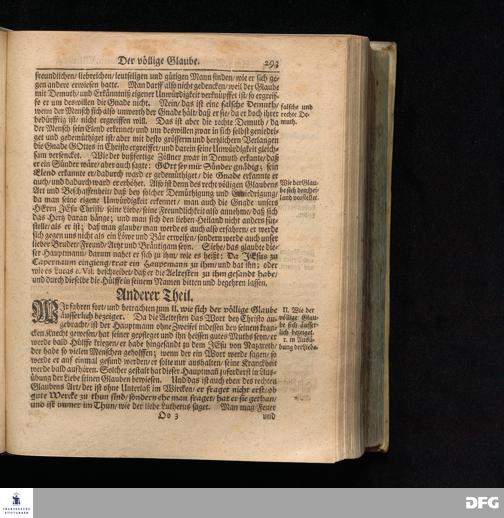 Der völlige Glaube. 293
freundlichen/ liebreichen/ leutseligen und gütigen Mann finden/ wie er sich ge-
gen andere erwiesen hatte. Man darff also nicht gedencken/ weil der Glaube
mit Demuth/ und Erkänntniß eigener Unwürdigkeit verknüpffet ist/ so ergreif-
fe er um deswillen die Gnade nicht. Nein/ das ist eine falsche Demuth/
wenn der Mensch sich also unwerth der Gnade hält/ daß er sie/ da er doch ihrer
bedürfftig ist/ nicht ergreiffen will. Das ist aber die rechte Demuth/ da
der Mensch sein Elend erkennet/ und um deswillen zwar in sich selbst geniedri-
get und gedemüthiget ist/ aber mit desto grösserm und hertzlichern Verlangen
die Gnade GOttes in Christo ergreiffet/ und darein seine Unwürdigkeit gleich-
sam versencket. Wie der bußfertige Zöllner zwar in Demuth erkante/ daß
er ein Sünder wäre/ aber auch sagte: GOtt sey mir Sünder gnädig; sein
Elend erkannte er/ dadurch ward er gedemüthiget/ die Gnade erkannte er
auch/ und dadurch ward er erhöhet. Also ist denn des recht völligen Glaubens
Art und Beschaffenheit/ daß bey solcher Demüthigung und Erniedrigung/
da man seine eigene Unwürdigkeit erkennet/ man auch die Gnade unsers
HErrn JEsu Christi/ seine Liebe/ seine Freundlichkeit also annehme/ daß sich
das Hertz daran hänge; und man sich den lieben Heiland nicht anders für-
stelle/ als er ist; daß man glaube/ man werde es auch also erfahren/ er werde
sich gegen uns nicht als ein Löwe und Bär erweisen/ sondern werde auch unser
lieber Bruder/ Freund/ Artzt und Bräutigam seyn. Siehe/ das glaubte die-
ser Hauptmann/ darum nahet er sich zu ihm/ wie es heißt: Da JEsus zu
Capernaum eingieng/ trat ein Hauptmann zu ihm/ und bat ihn; oder
wie es Lucas c. VII. beschreibet/ daß er die Aeltesten zu ihm gesandt habe/
und durch dieselbe die Hülffe in seinem Namen bitten und begehren lassen.
falsche und
rechte De-
muth.
Wie der Glaube
sich den Hei-
land vorstellet.
Anderer Theil.
WIr fahren fort/ und betrachten zum II. wie sich der völlige Glaube
äusserlich bezeiget. Da die Aeltesten das Wort bey Christo an-
gebracht/ ist der Hauptmann ohne Zweifel indessen bey seinem kran-
cken Knecht gewesen/ hat seiner gepfleget und ihn heissen gutes Muths seyn/ er
werde bald Hülffe kriegen/ er habe hingesandt zu dem JEsu von Nazareth/
der habe so vielen Menschen geholffen; wenn der ein Wort werde sagen/ so
werde er auf einmal gesund werden/ er solte nun aushalten/ seine Kranckheit
werde bald aufhören. Solcher gestalt hat dieser Hauptmañ zuförderst in Aus-
übung der Liebe seinen Glauben bewiesen. Und das ist auch eben des rechten
Glaubens Art/ der ist ohne Unterlaß im Wircken/ er fraget nicht erst/ ob
gute Wercke zu thun sind/ sondern ehe man fraget/ hat er sie gethan/
und ist immer im Thun/ wie der liebe Lutherus saget. Man mag Feuer
II. Wie der
völlige Glau-
be sich äusser-
lich bezeiget.
1. in Ausü-
bung der Liebe.
Oo 3 und
FRANCKESCHE
STIFTUNGEN
DFG